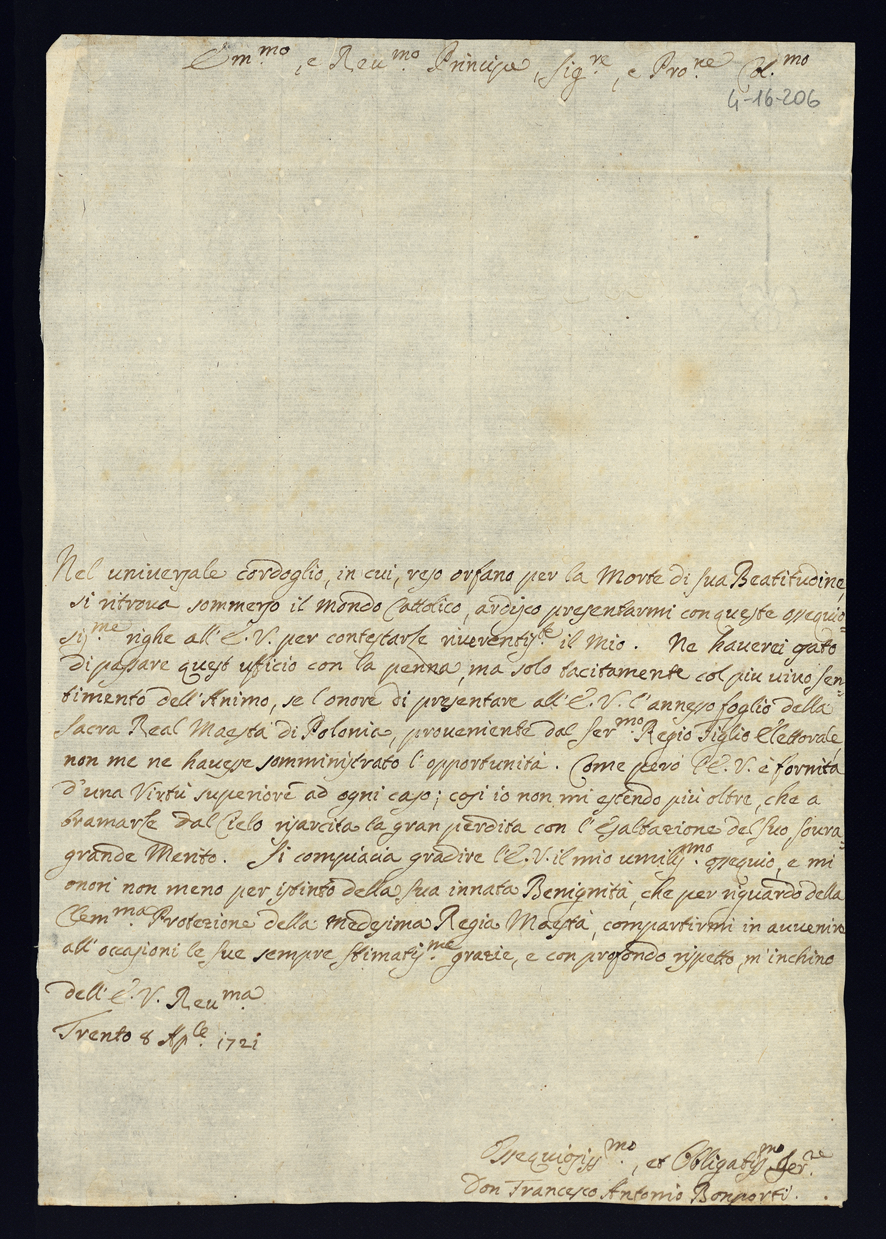 Em.mo, e Reu.mo Principe, Sig.re, e Pro.ne Col.mo
4-16-206
Nel uniuersale cordoglio, in cui, reso orfano per la Morte di sua Beatitudine,
si ritroua sommerso il mondo Cattolico, ardisco presentarmi con queste ossequio=
sis.me righe all'E. V. per contestarle riuerentis.te il mio. Ne hauerei osato
di passare quest ufficio con la penna, ma solo tacitamente col piu uiuo sen=
timento dell'Animo, se l'onore di presentare all'E. V. l'annesso foglio della
Sacra Real Maestà di Polonia, proueniente dal Ser.mo Regio Figlio Elettorale,
non me ne hauesse somministrato l'opportunità. Come però l'E. V. è fornita
d'una Virtù superiore ad ogni caso; così io non mi estendo più oltre, che a
bramarle dal Cielo risarcita la gran perdita con l'Esaltazione del suo soura=
grande Merito. Si compiacia gradire l'E. V. il mio umilis.mo ossequio, e mi
onori non meno per istinto della sua innata Benignità, che per riguardo della
Clem.ma Protezione della medesima Regia Maestà, compartirmi in auuenire
all'occasioni le sue sempre stimatis.me grazie, e con profondo rispetto m'inchino
dell'E. V. Reu.ma
Trento 8 Ap.le 1721
Ossequiosiss.mo, et Obligatis.mo Ser.re
Don Francesco Antonio Bonporti.